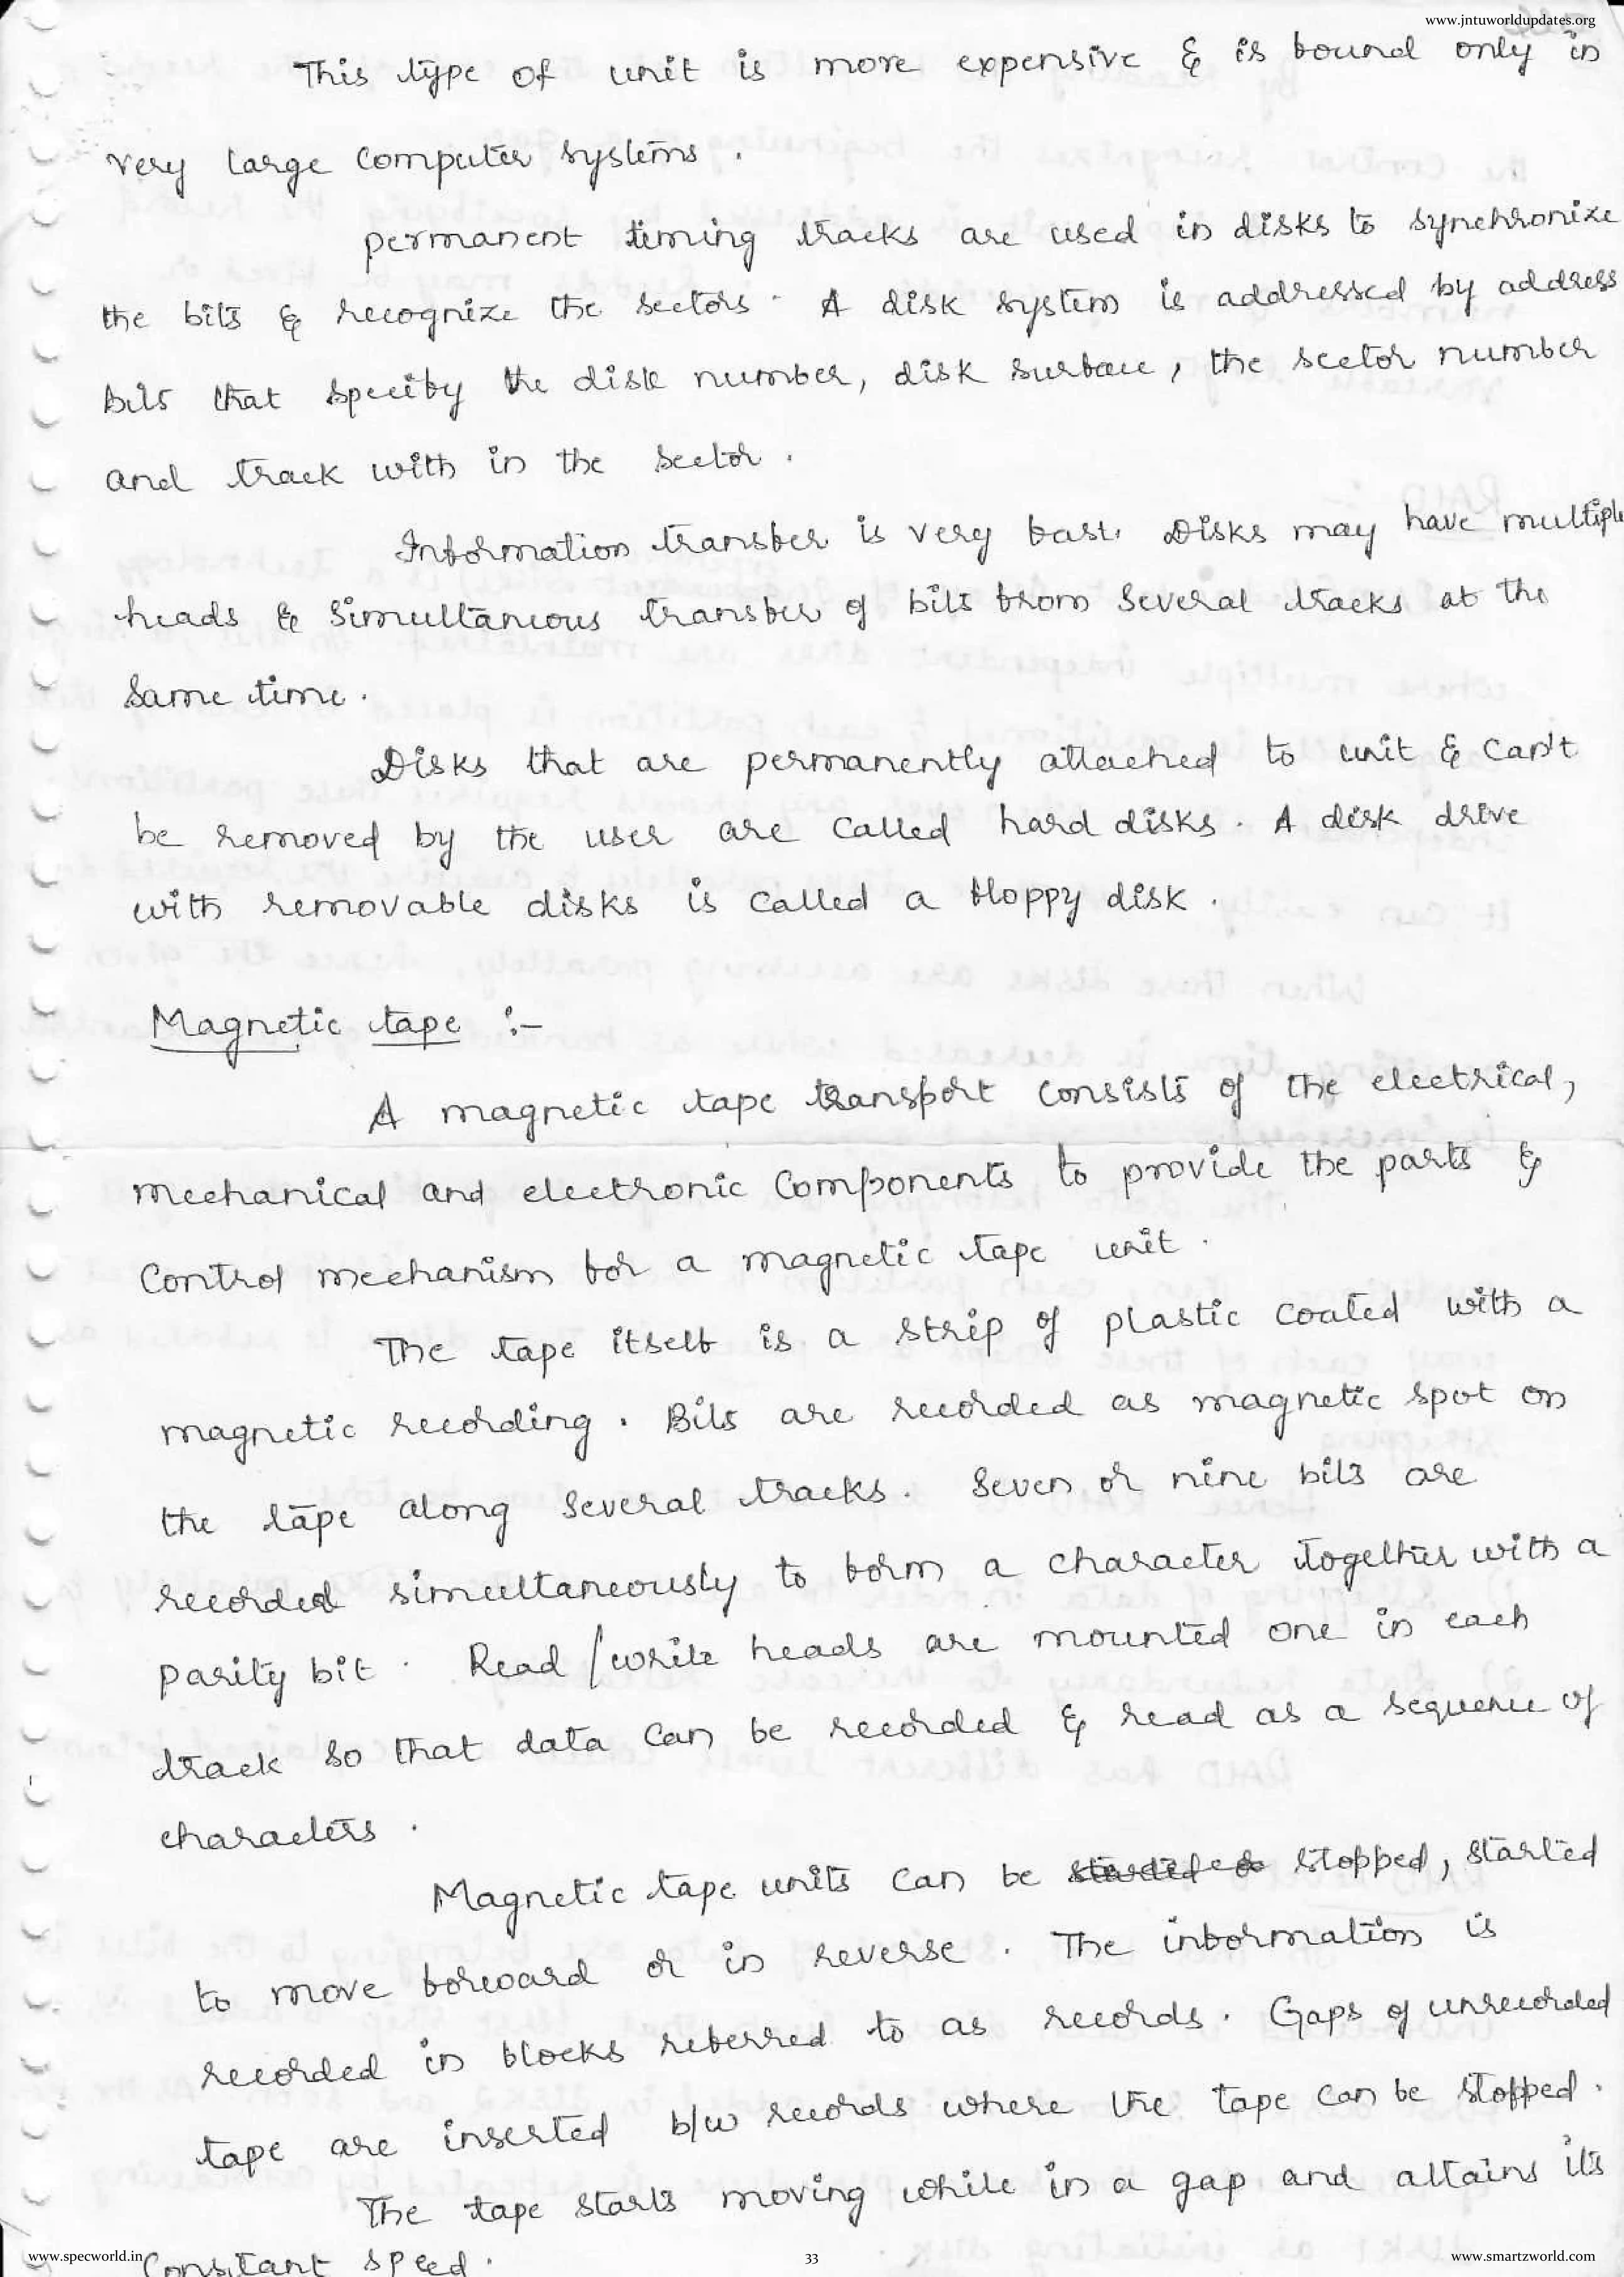 www.jntuworldupdates.org
This type of unit is more expensive & is found only in
very large computer systems .
permanent timing tracks are used in disks to synchronize
the bits & recognize the sectors . A disk system is addressed by address
bits that specify the disk number, disk surface, the sector number
and track with in the sector .
Information transfer is very fast. Disks may have multiple
heads & simultaneous transfer of bits from several tracks at the
same time .
Disks that are permanently attached to unit & can't
be removed by the user are called hard disks . A disk drive
with removable disks is called a floppy disk .
Magnetic tape :-
A magnetic tape transport consists of the electrical,
mechanical and electronic components to provide the parts &
control mechanism for a magnetic tape unit .
The tape itself is a strip of plastic coated with a
magnetic recording . Bits are recorded as magnetic spot on
the tape along several tracks . Seven or nine bits are
recorded simultaneously to form a character together with a
parity bit . Read /write heads are mounted one in each
track so that data can be recorded & read as a sequence of
characters .
Magnetic tape units can be stopped, started
to move forward or in reverse . The information is
recorded in blocks referred to as records . Gaps of unrecorded
tape are inserted b/w records where the tape can be stopped .
The tape starts moving while in a gap and attains its
constant speed .
www.specworld.in
33
www.smartzworld.com